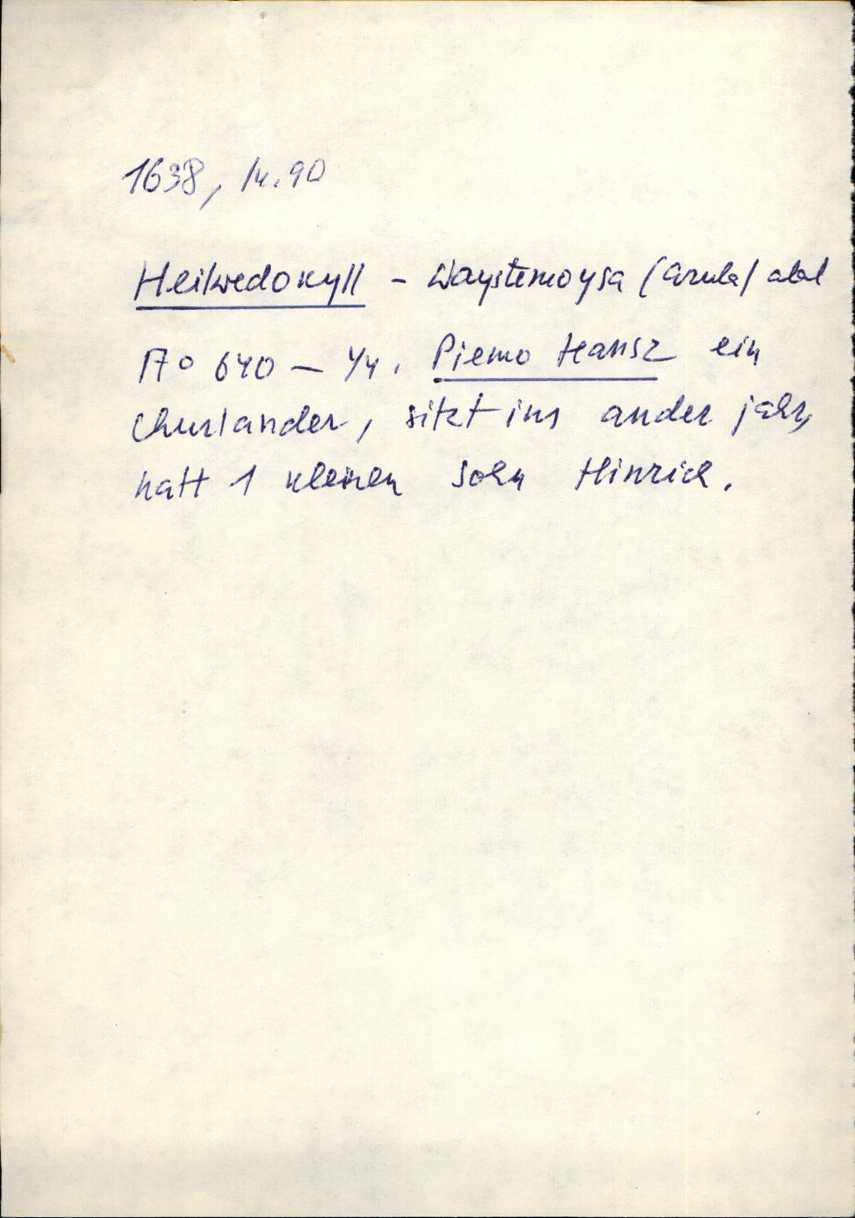 1638, lk. 90
Heikredokyll - Waystemoysa (Arula) abal
A° 640 – 1/4. Piemo Hansz ein
Churlander, sitzt ins ander jahr,
hatt 1 kleinen Sohn Hinrich.